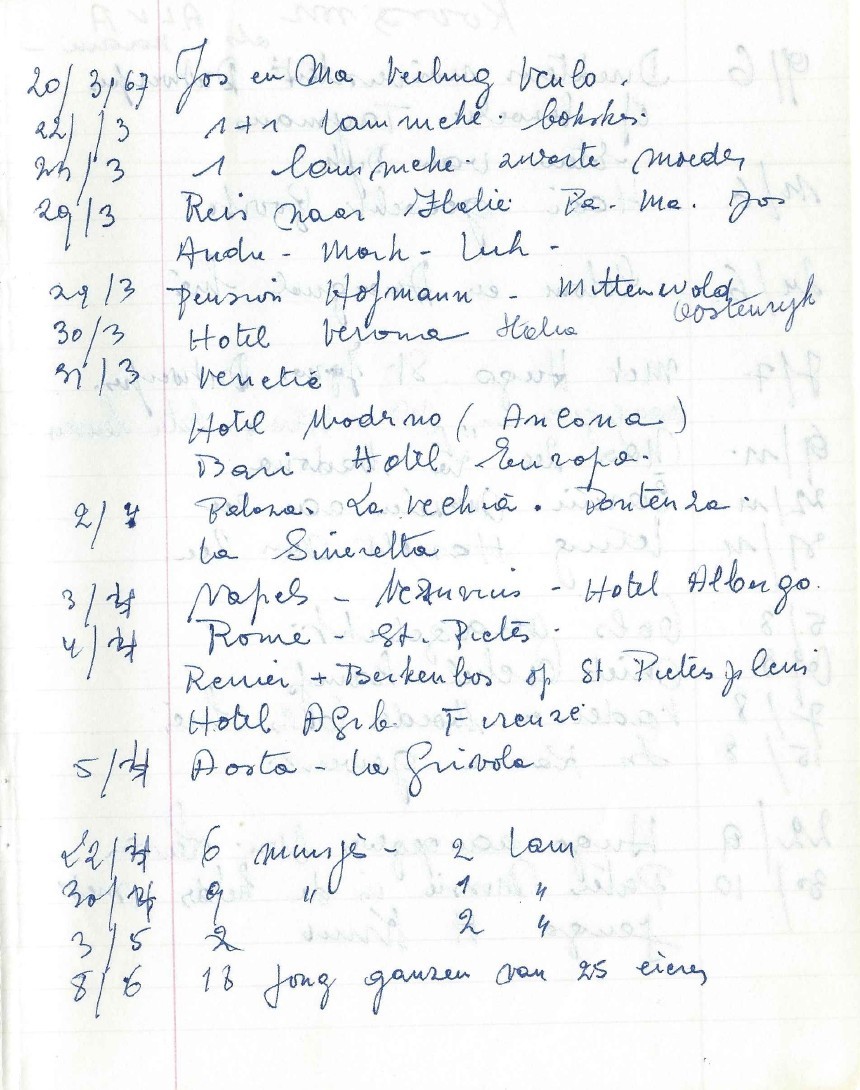 20/3/67 Jos en Ma veiling Venlo.
22/3 1+1 lammeke. bokske.
/3 1 lammeke. zwarte moeder
29/3 Reis naar Italie. Pa. Ma. Jos
Andre - Mark - Luk -
29/3 pension Hofmann - Mittenwold Oostenryk
30/3 Hotel Verona Italia
31/3 Venetië
Hotel Moderno (Ancona)
Bari Hotel Europa.
2/4 La Vechia. Pontenza.
La Sineretta
3/4 Napels - Vezuvius - Hotel Albergo.
4/4 Rome - St. Pieters.
Renier + Berkenbos op St Pieters plein
Hotel Firenze
5/4 Aosta - La Grivola
22/4 6 - 2 lam
30/4 9 " 1 "
3/5 2 2 "
8/6 18 jong ganzen van 25 eieren